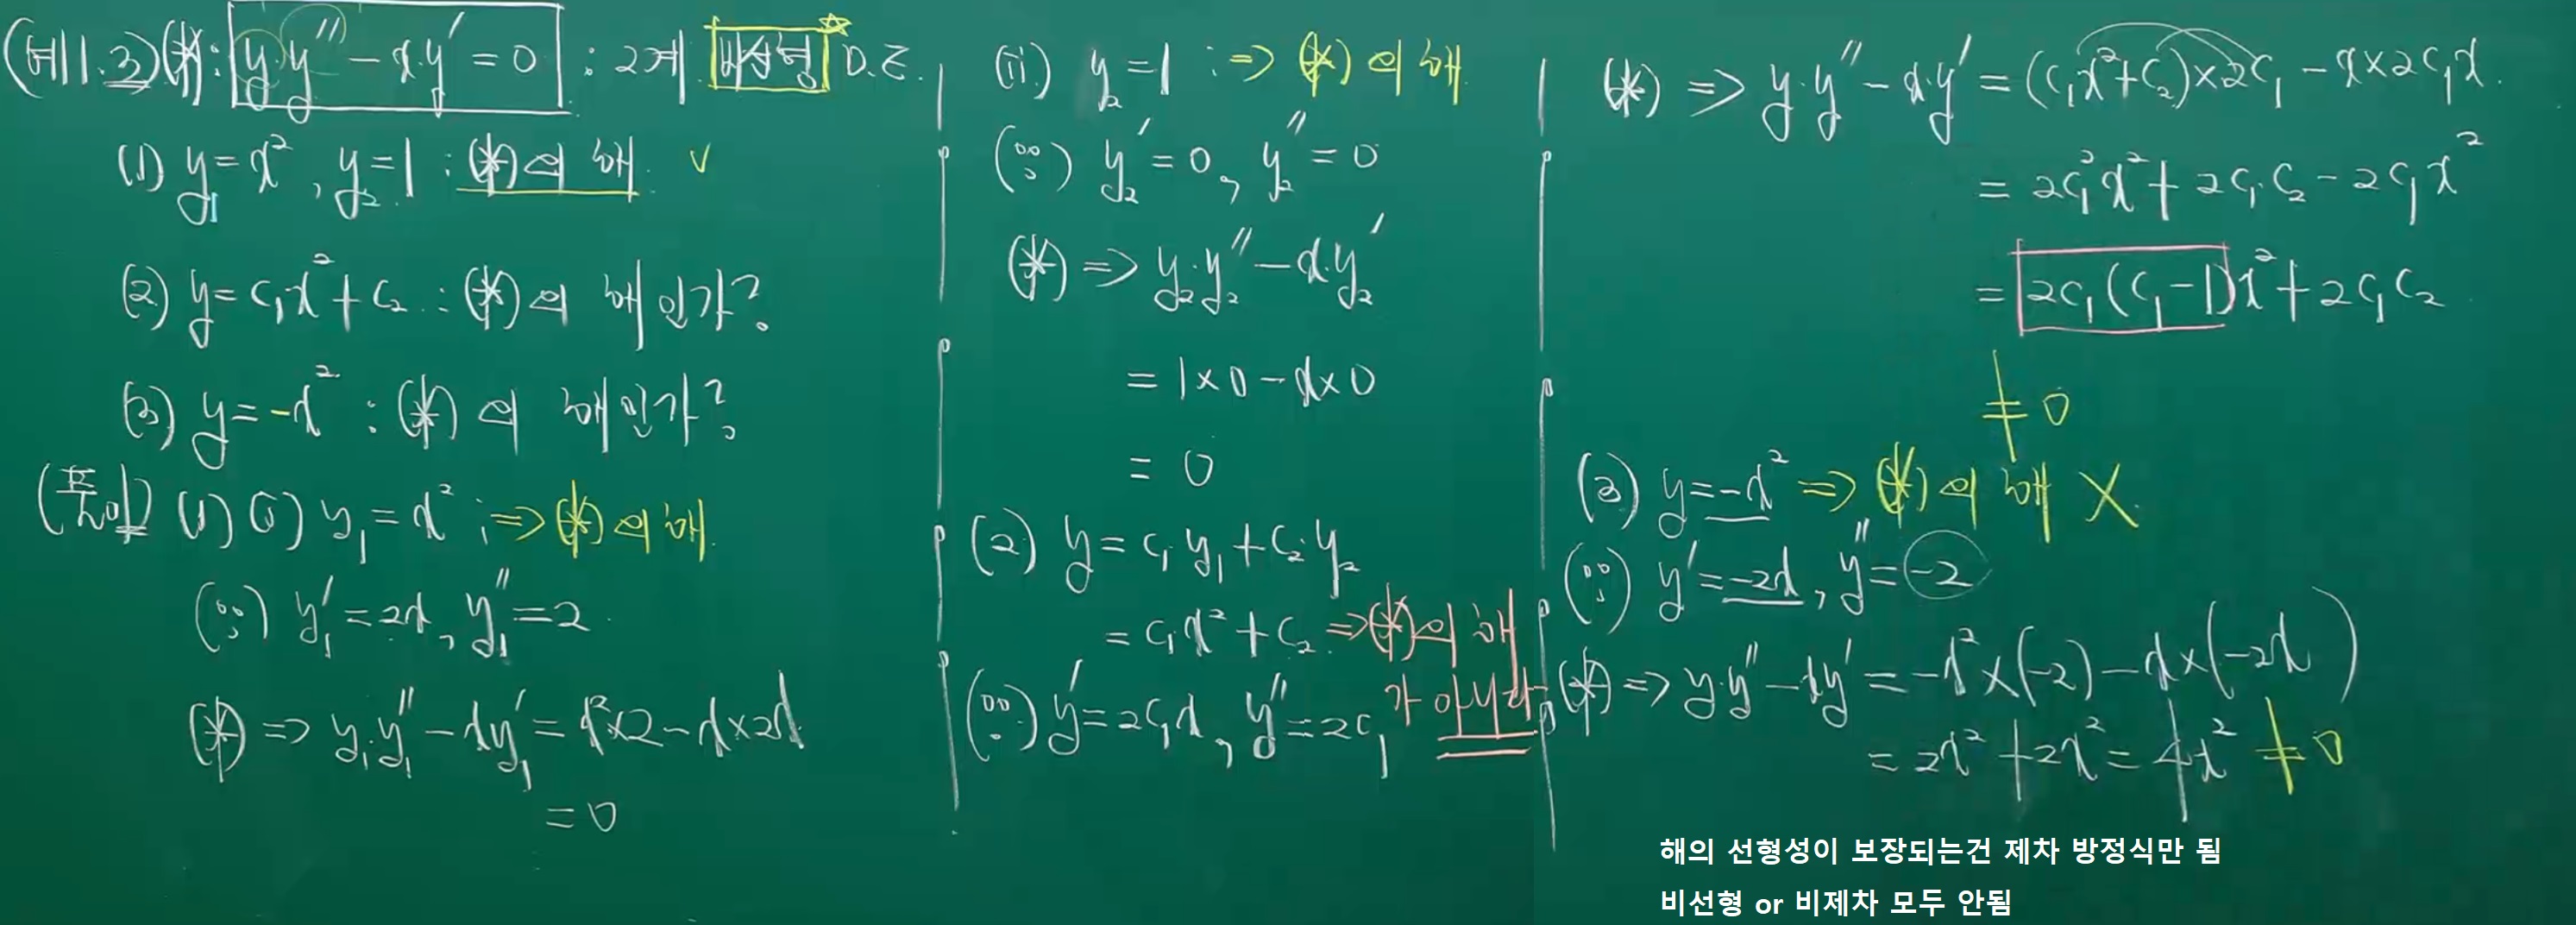 (예1.3)(*): y·y'' - x·y' = 0 : 2계 비선형 D.E.
(1) y₁ = x², y₂ = 1 : (*)의 해. v
(2) y = c₁x² + c₂ : (*)의 해인가?
(3) y = -x² : (*)의 해인가?
(풀이) (1) (i) y₁ = x² ; => (*)의 해.
(∵) y₁' = 2x, y₁'' = 2.
(*) => y₁·y₁'' - xy₁' = x²×2 - x×2x
= 0
(ii) y₂ = 1 ; => (*)의 해.
(∵) y₂' = 0, y₂'' = 0
(*) => y₂·y₂'' - x·y₂'
= 1×0 - x×0
= 0
(2) y = c₁·y₁ + c₂·y₂
= c₁x² + c₂ => (*)의 해
가 아니다
(∵) y' = 2c₁x, y'' = 2c₁
(*) => y·y'' - x·y' = (c₁x²+c₂)×2c₁ - x×2c₁x.
= 2c₁²x² + 2c₁·c₂ - 2c₁x²
= 2c₁(c₁-1)x² + 2c₁c₂
≠ 0
(3) y = -x² => (*)의 해 X
(∵) y' = -2x, y'' = -2
(*) => y·y'' - xy' = -x²×(-2) - x×(-2x)
= 2x² + 2x² = 4x² ≠ 0
해의 선형성이 보장되는건 제차 방정식만 됨
비선형 or 비제차 모두 안됨